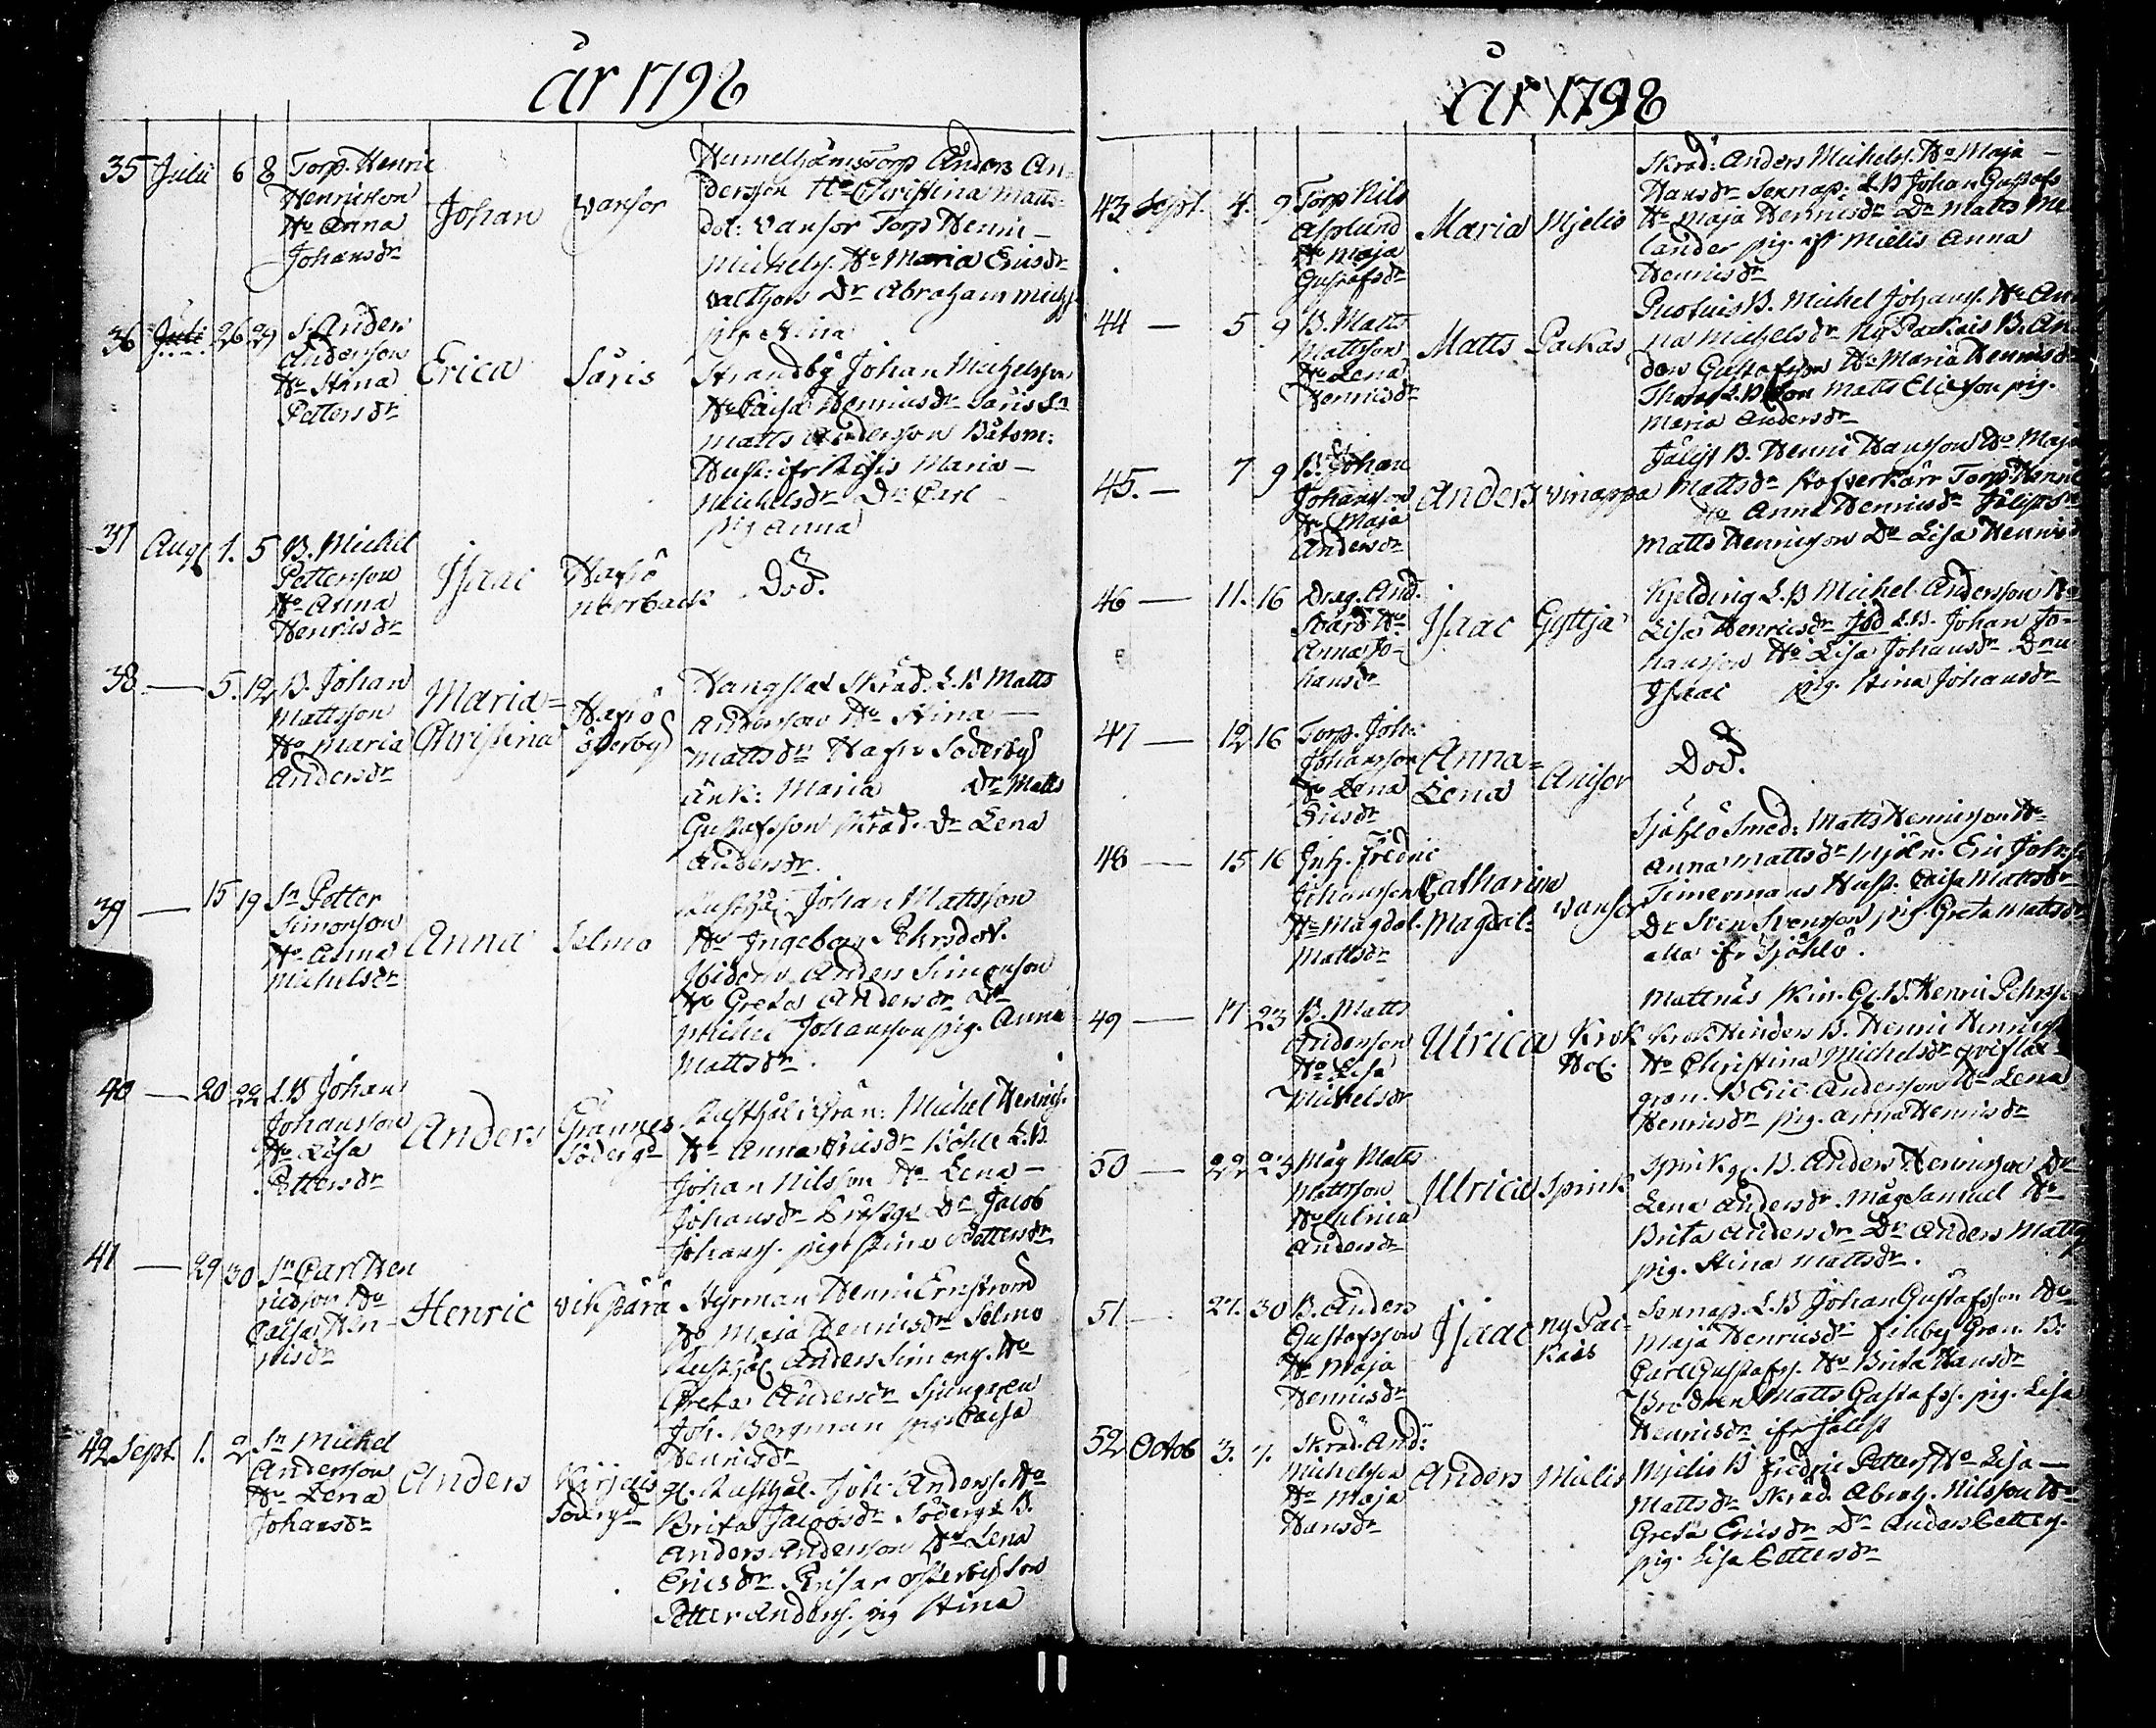 år 1798
35 Julii 6 8 Torp. Henric
Henricsson
Ho Anna
Johansdr
Johan
Vansor
Humelholms Torp Anders An-
dersson Ho Christina Matts
dot: Vansor Torp Henric
Michels. Ho Maria Ericsdr
Dr Abraham Michs
pig Stina
36 Juli 26 29 S. Anders
Andersson
Ho Stina
Pettersdr
Erica
Säris
Strandby Johan Michelsson
Ho Caisa Henricsdr Säris Sn
Matts Andersson Båtsm:
Hust: ifr Maria
Michelsdr Dr Carl
pig Anna
37 Aug 1. 5 B. Michel
Pettersson
Ho Anna
Henricsdr
Isaac
Hafsö
Död.
38 — 5. 12 B. Johan
Mattsson
Ho Maria
Andersdr
Maria=
Christina
Hafsö
österby
Hangslax Skräd. L.B Matts
Andersson Ho Stina
Mattsdr Hafsö Söderby
Änk: Maria Dr Matts
Gustafsson Skräd. Dr Lena
Andersdr.
39 — 15 19 Sn Petter
Simonsson
Ho Anna
Michelsdr
Anna
Selmo
Rusthål. Johan Mattsson
Ho Ingeborg Pehrsdot.
Ibidem Anders Simonsson
Ho Greta Andersdr Dr
Michel Johansson pig. Anna
Mattsdr.
40 — 20 22 L.B Johan
Johansson
Ho Lisa
Pettersdr
Anders
Grannes
Söderg
Rusthål i Grän: Michel Henrics.
Ho Anna Ericsdr Böhle L.B
Johan Nilsson Ho Lena
Johansdr Dr Jacob
Johans. pig Stina Pettersdr
41 — 29 30 Sn Carl Hen
ricsson Ho
Caisa Hen-
ricsdr
Henric
Vikpärä
Styrman Henric Ernström
Ho Maja Henricsdr Selmo
Rusthål Anders Simons. Ho
Greta Andersdr Sjungaren
Joh. Bergman pig Caisa
Henricsdr
42 Sept 1. 2 Sn Michel
Andersson
Ho Lena
Johansdr
Anders
Kirjais
Söderg
gl. Rusthål. Joh: Anders. Ho
Brita Jacobsdr Söderg B.
Anders Andersson Ho Lena
Ericsdr österby son
Petter Anders. pig Stina
år 1798
43 Sept. 4. 9 Torp Nils
Asplund
Ho Maja
Gustafsdr
Maria
Mjelis
Skräd: Anders Michels. Ho Maja
Hansdr Sexnap: L.B Johan Gustafs
Ho Maja Henricsdr Dr Matts Me
lander pig ifr Mielis Anna
Henricsdr
44 — 5 9 B. Matts
Mattsson
Ho Lena
Henricsdr
Matts
Packas
B. Michel Johans. Ho An
na Michelsdr Ny Packais B. An
ders Gustafsson Ho Maria Henricsdr
L.B Son Matts Elieson pig.
Maria Andersdr
45. — 7 9 B. Johan
Johansson
Ho Maja
Andersdr
Anders
Vinappa
Jälist B. Henric Hansson Ho Maja
Mattsdr Torp Henric
Ho Anna Henricsdr
Matts Henricsson Dr Lisa Henricsd
46 — 11. 16 Drag. And.
Svärd Ho
Anna Jo-
hansdr
Isaac
Gyttja
Kjelding L.B Michel Andersson Ho
Lisa Henricsdr L.B. Johan Jo-
hansson Ho Lisa Johansdr
Isaac pig. Stina Johansdr
47 — 12 16 Torp. Joh:
Johansson
Ho Lena
Ericsdr
Anna=
Lena
Anisor
Död.
48 — 15 16 Inh. Fredric
Johansson
Ho Magdal.
Mattsdr
Catharina
Magdal:
Vansor
Sjöhlö Smed: Matts Henricsson Ho
Anna Mattsdr Mjöln. Eric Johs
Timermans Hust. Caisa Mattsdr
Dr Sven Svensson pig. Greta Mattsdr
alla ifr Sjöhlö.
49 — 17 23 B. Matts
Andersson
Ho Lisa
Michelsdr
Ulrica
Krok
Hol.
Mattnäs Skin. Gl. B. Henric Pehrss
B. Henric Henricss
Ho Christina Michelsdr
gran. B Eric Andersson Ho Lena
Henricsdr pig. Anna Henricsdr
50 — 22 23 Måg Matts
Mattsson
Ho Ulrica
Andersdr
Ulrica
Spink
Spink gl. B. Anders Henricsson Ho
Lena Andersdr. Måg Samuel Ho
Brita Andersdr Dr Anders Matts
pig. Stina Mattsdr.
51 — 27. 30 B. Anders
Gustafsson
Ho Maja
Henricsdr
Isaac
Ny Pac-
kais
Sexnap. L.B Johan Gustafsson Ho
Maja Henricsdr Finby Gran. B.
Carl Gustafs. Ho Brita Hansdr
Brodren Matts Gustafs. pig. Lisa
Henricsdr ifr Jälist
52 Octob 3. 7. Skräd. And:
Michelsson
Ho Maja
Hansdr
Anders
Mielis
Mjelis B Fredric Petters Ho Lisa
Mattsdr Skräd. Abrah. Nilsson Ho
Greta Ericsdr Dr Anders Petters.
pig. Lisa Pettersdr